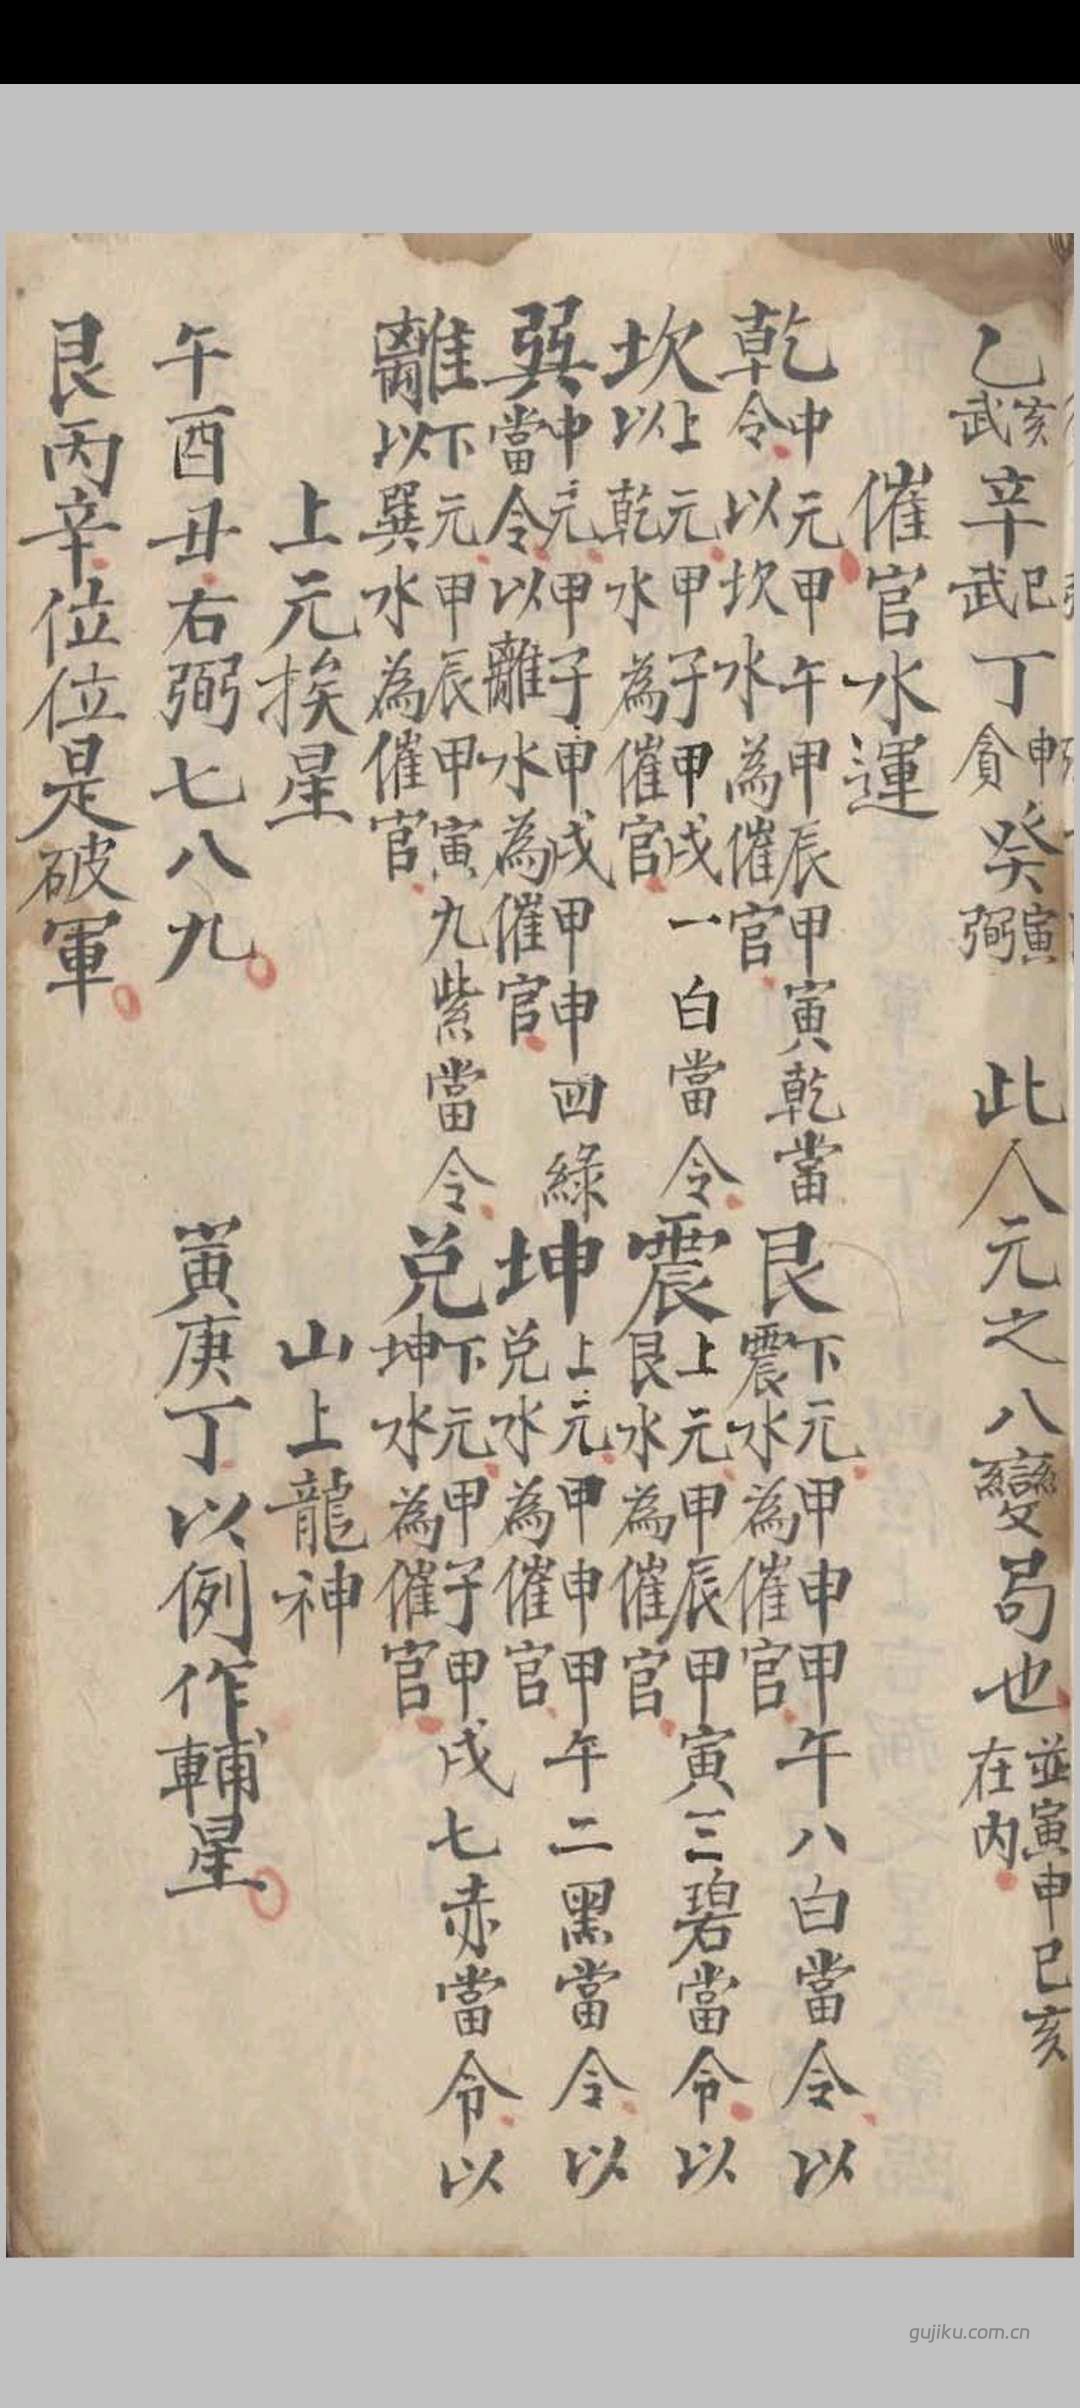 乙亥武辛巳武丁申貪癸寅弼　此人元之八變局也並寅申巳亥在内
催官水運
乾中元甲午甲辰甲寅乾當令以坎水為催官　艮下元甲申甲午八白當令以震水為催官
坎上元甲子甲戌一白當令以乾水為催官　震上元甲辰甲寅三碧當令以艮水為催官
巽中元甲子甲戌甲申四綠當令以離水為催官　坤上元甲申甲午二黑當令以兌水為催官
離下元甲辰甲寅九紫當令以巽水為催官　兌下元甲子甲戌七赤當令以坤水為催官
上元挨星　山上龍神
午酉丑右弼七八九　寅庚丁以例作輔星
艮丙辛位位是破軍
gujiku.com.cn